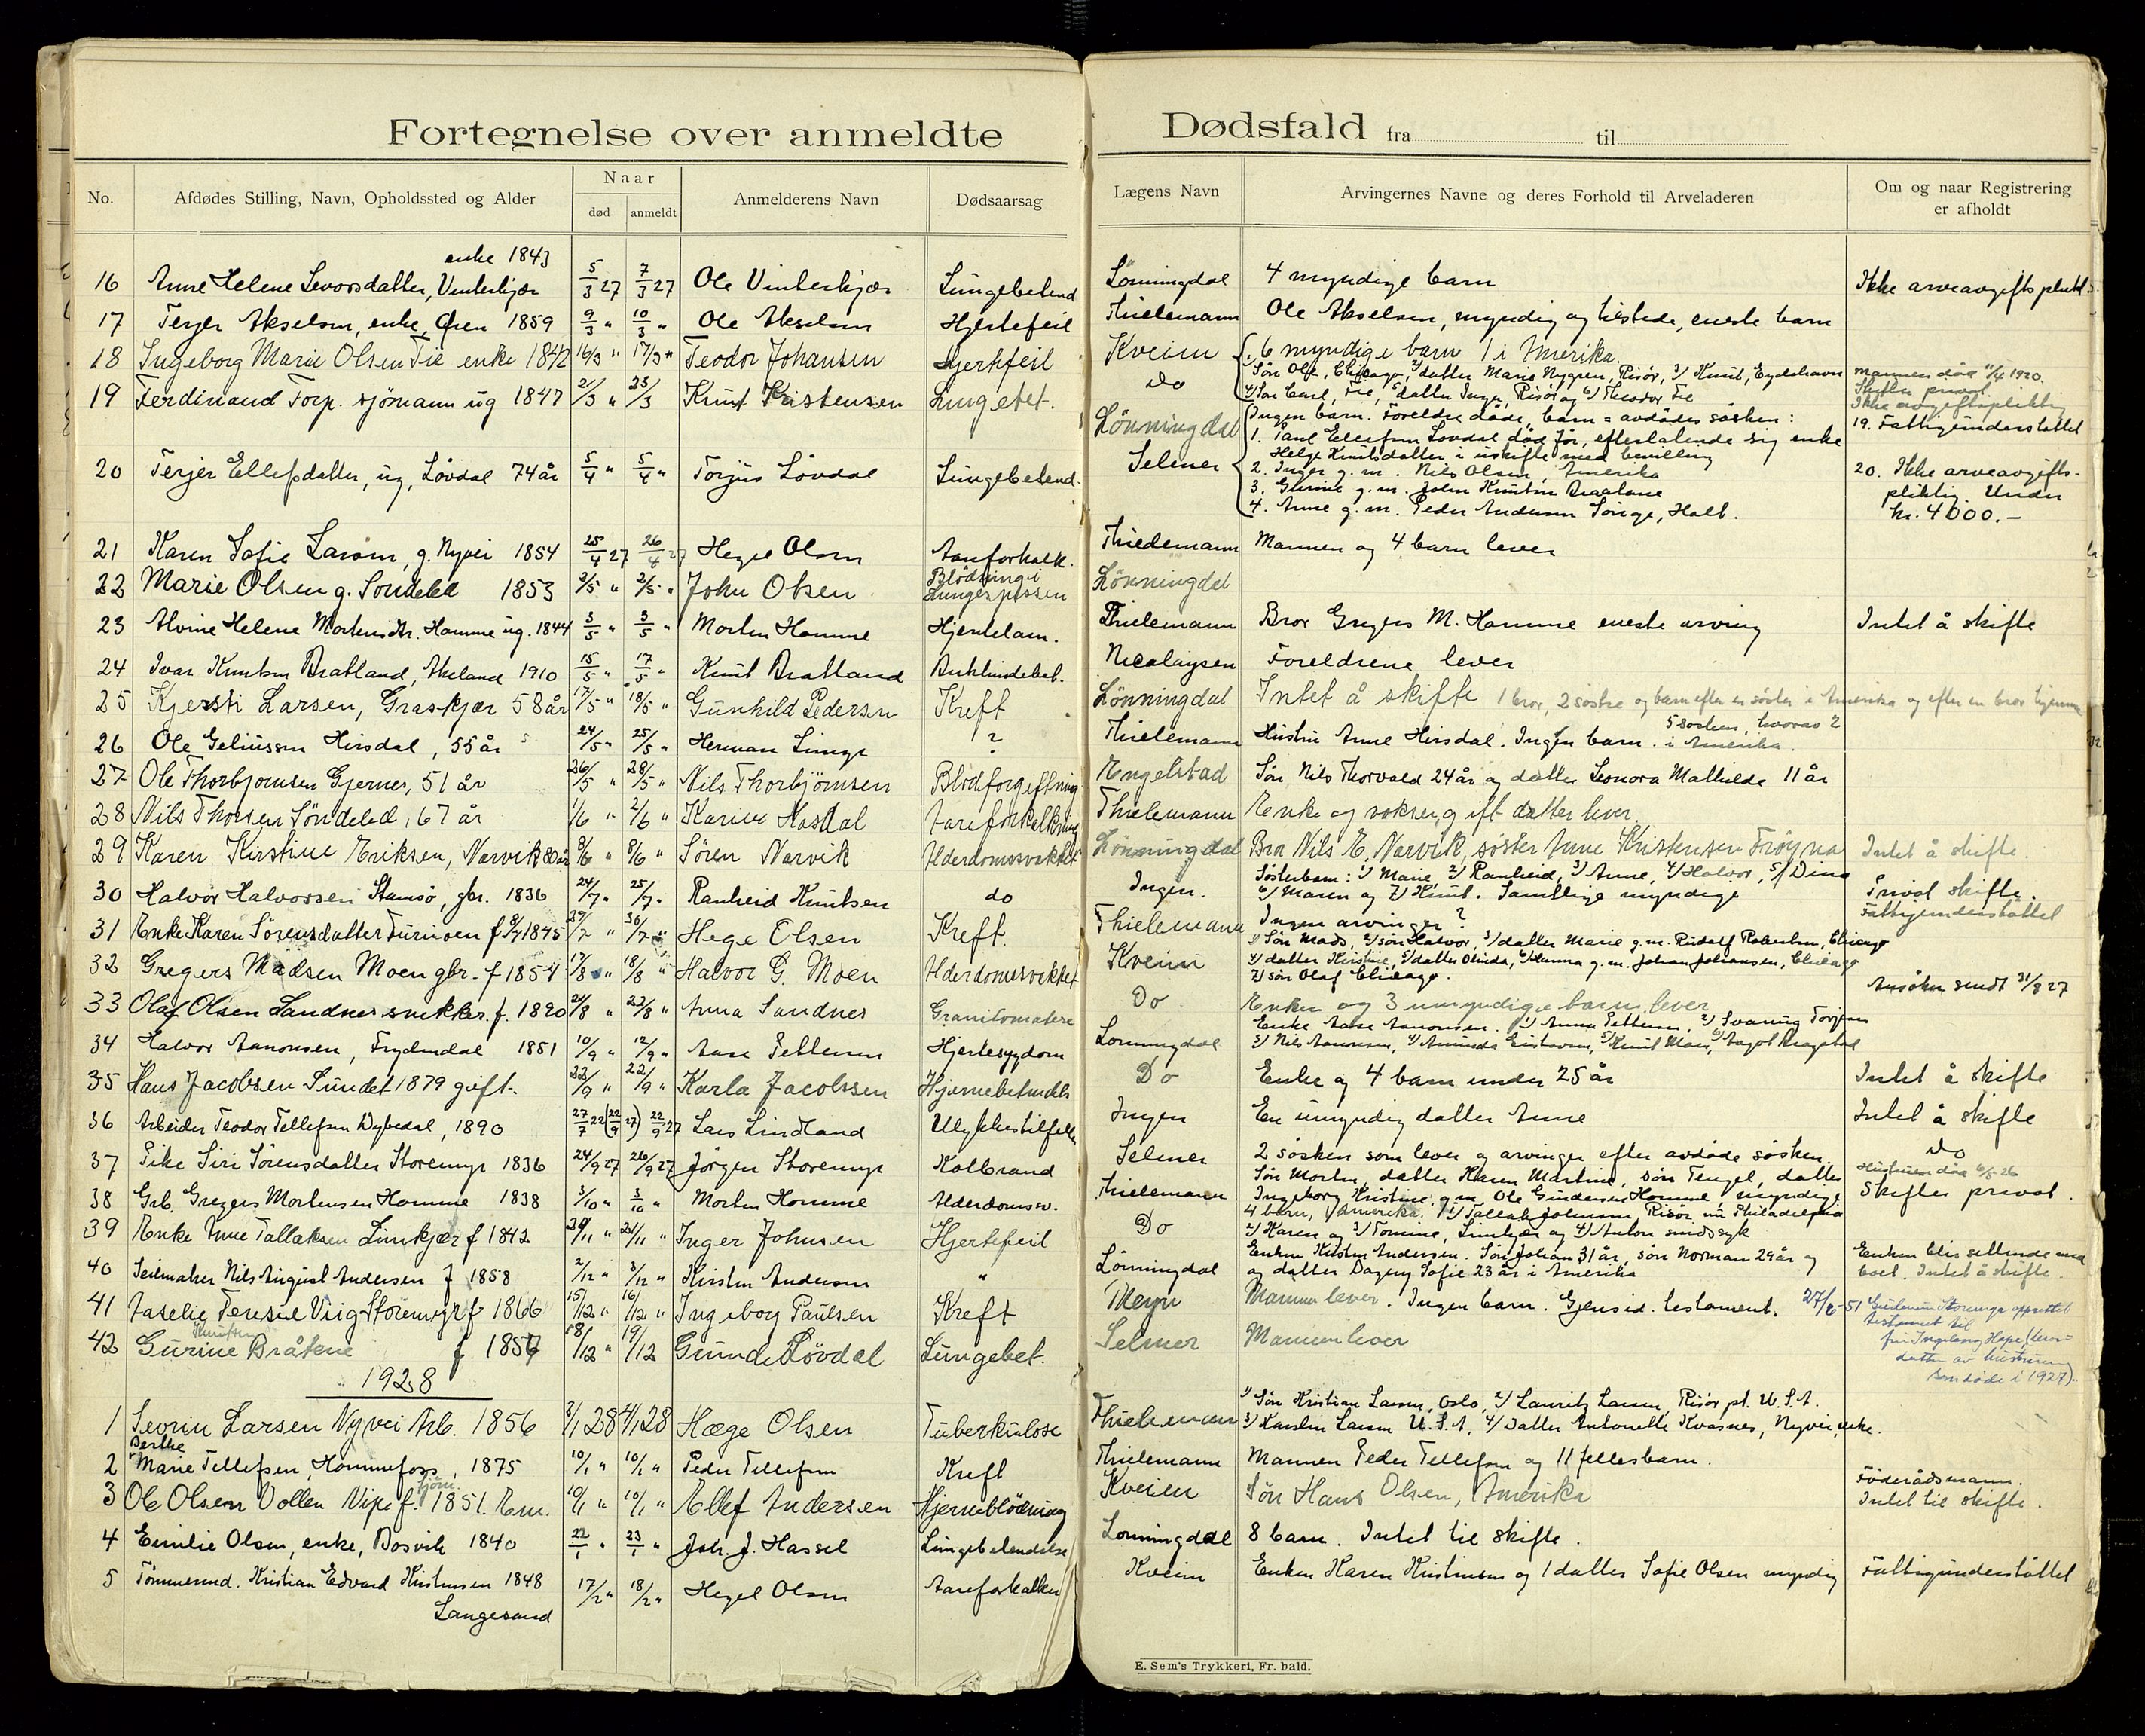 Fortegnelse over anmeldte Dødsfald fra til
No. Afdødes Stilling, Navn, Opholdssted og Alder Naar død anmeldt Anmelderens Navn Dødsaarsag Lægens Navn Arvingernes Navne og deres Forhold til Arveladeren Om og naar Registrering er afholdt
enke 1843
16 Anne Helene Levorsdatter, Vinterkjær 5/3 27 7/3 27 Ole Vinterkjær Lungebetend Lønningdal 4 myndige barn Ikke arveavgiftspliktig
17 Terjer Akselsen, enke, Øien 1859 9/3 " 10/3 " Ole Akselsen Hjertefeil Thielemann Ole Akselsen, myndig og tilstede, eneste barn
18 Ingeborg Marie Olsen Fie enke 1842 16/3 " 17/3 " Teodor Johansen Hjertefeil Kveim 6 myndige barn 1 i Amerika.
1) Søn Ole, Chicago, 2) datter Marie Nygren, Risør, 3) Knut, Eydehavn
4) søn Carl, Fie, 5) datter Inger, Risør og 6) Theodor Fie
mannen død 11/4 1920.
Skiftes privat.
Ikke avgiftspliktig
19 Ferdinand Torp. sjømann ug 1847 2/3 " 23/3 Knut Kristensen Lungebet. Do
19. Fattigunderstøttet
20 Terjer Ellefsdatter, ug, Løvdal 74 år 5/4 " 5/4 " Torjus Løvdal Lungebetend. Lønningdal
Selmer
Ingen barn. Foreldre døde, barn = avdødes søsken:
1. Tarel Ellefsen Lovdal død før, efterlatende sig enke
Helge Knutsdatter i uskifte med bevilling
2. Inger g.m. Nils Olsen, Amerika
3. Gurine g.m. John Knutsen Braatane
4. Anne g.m. Peder Andersen Songe, Holt.
20. Ikke arveavgifts-
pliktig. Under
kr. 4000.-
21 Karen Sofie Larsen, g. Nyvei 1854 25/4 27 26/4 27 Hege Olsen Aareforkalk. Thielemann Mannen og 4 barn lever
22 Marie Olsen g. Søndeled 1853 2/5 " 2/5 " John Olsen Blødning i Lungespissen Lønningdal
23 Alvine Helene Mortensdtr. Homme ug. 1844 3/5 " 3/5 " Morten Homme Hjertelam. Thielemann Bror Gregers M. Homme eneste arving Intet å skifte
24 Ivar Knutsen Bratland, Akeland 1910 15/5 " 17/5 " Knut Bratland Nicolaysen Foreldrene lever
25 Kjersti Larsen, Graskjær 58 år 17/5 " 18/5 " Gunhild Pedersen Kreft Lønningdal Intet å skifte 1 bror, 2 søstre og barn efter en søster i Amerika og efter en bror hjemme
26 Ole Geliussen Hirsdal, 55 år 24/5 " 25/5 " Herman Lunge ? Thielemann Hustru Anne Hirsdal. Ingen barn. 5 søsken, hvorav 2 i Amerika.
27 Ole Thorbjørnsen Gjernes, 51 år 26/5 " 28/5 " Nils Thorbjørnsen Blodforgiftning Engelstad Søn Nils Thorvald 24 år og datter Leonora Mathilde 11 år
28 Nils Thorsen Søndeled, 67 år 1/6 " 2/6 " Karine Hasdal Aareforkalkning Thielemann Enke og voksen, gift datter lever.
29 Karen Kirstine Eriksen, Narvik 80 år 8/6 " 8/6 " Søren Narvik Alderdomssvakhet Lønningdal Bror Nils E. Narvik, søster Anne Kristensen Frøyna Intet å skifte.
30 Halvor Halvorsen Stamsø, gbr. 1836 24/7 " 25/7 " Ranheid Knutsen do Ingen. Søsterbarn: 1) Marie, 2) Ranheid, 3) Anne, 4) Halvor, 5) Dina
6) Maren og 7) Knut. Samtlige myndige Privat skifte.
31 Enke Karen Sørensdatter Furumoen f 8/7 1845 29/7 " 30/7 " Hege Olsen Kreft. Thielemann Ingen arvinger? Fattigunderstøttet
32 Gregers Madsen Moen gbr. f 1854 17/8 " 18/8 " Halvor G. Moen Alderdomssvakhet Kveim 1) Søn Mads, 2) søn Halvor, 3) datter Marie g.m. Rudolf Robertsen, Chicago
4) datter Kristine, 5) datter Olinda, 6) Hanna g.m. Johan Johansen, Chicago
7) søn Olaf Chicago.
33 Olaf Olsen Sandnes snekker. f. 1890 21/8 " 22/8 " Anna Sandnes Do Enken og 3 umyndige barn lever Ansøkn sendt 31/8 27
34 Halvor Aanonsen, Frydendal 1851 10/9 " 12/9 " Aase Pettersen Hjertesygdom Lønningdal Enke Aase Aanonsen. 1) Anna Pettersen, 2) Svanug Torjesen
3) Nils Aanonsen, 4) Amunda Gustavsen, 5) Knut Moen, 6) Aagot Kragstad
35 Hans Jacobsen Sundet 1879 gift. 22/9 " 22/9 " Karla Jacobsen Hjernebetendels Do Enke og 4 barn under 25 år Intet å skifte
36 Arbeider Teodor Tellefsen Dybedal, 1890 27/7 22 (22/9 27) 22/9 27 Lars Lindland Ulykkestilfelle Ingen En umyndig datter Anne Intet å skifte
37 Pike Siri Sørensdatter Storemyr 1836 24/9 27 26/9 27 Jørgen Storemyr Kolbrand Selmer 2 søsken som lever og arvinger efter avdøde søsken. do
38 Grb. Gregers Mortensen Homme 1838 3/10 " 3/10 " Morten Homme Alderdomssv. Thielemann Søn Morten, datter Karen Martine, søn Tengel, datter
Ingeborg Kristine g.m. Ole Gundersen Homme, myndige
Hustruen død 6/5 26
Skiftes privat.
39 Enke Anne Tallaksen Limkjær f 1842 20/11 " 21/11 " Inger Johnsen Hjertefeil Do 4 barn, i Amerika. 1) Tallak Johnsen, Risør nu Philadelphia
2) Karen og 3) Tomine, Limkjær og 4) Anton sindssyk
40 Seilmaker Nils August Andersen f 1858 2/12 " 3/12 " Kirsten Andersen " Lønningdal Enken Kirsten Andersen. Søn Johan 31 år, søn Norman 29 år og
og datter Dagny Sofie 23 år i Amerika
Enken blir sittende med
boet. Intet å skifte.
41 Aaselie Teresie Viig Storemyr f 1866 15/12 " 16/12 " Ingeborg Paulsen Kreft Meyn Mannen lever. Ingen barn. Gjensid. testament. 27/2-51 Gunderun Storemyr opprettet
testament til
fru Ingeborg Hope (bror-
datter av hustruen
som døde i 1927).
42 Gurine Knutsen Bråtene f 1857 18/12 " 19/12 Gunde Løvdal Lungebet. Selmer Mannen lever
1928
1 Severin Larsen Nyvei Arb. 1856 3/1 28 4/1 28 Hæge Olsen Tuberkulose Thielemann 1) Søn Kristian Larsen, Oslo, 2) Lauritz Larsen, Risør pt. U.S.A.
3) Karsten Larsen U.S.A, 4) Datter Antonette Kvasnes, Nyvei, enke.
2 Berthe Marie Tellefsen, Hommefoss, 1875 10/1 " 10/1 " Peder Tellefsen Kreft Thielemann Mannen Peder Tellefsen og 11 fellesbarn.
3 Ole Olsen Vollen Vipe f. 1851. Em. 10/1 " 10/1 " Ellef Andersen Hjerneblødning Kveim Søn Hans Olsen, Amerika Føderådsmann.
Intet til skifte.
4 Emilie Olsen, enke, Bosvik 1840 22/1 " 23/1 " Joh. J. Hassel Lungebetendelse Lønningdal 8 barn. Intet til skifte.
5 Tømmermd. Kristian Edvard Kristensen 1848
Langesand 17/2 " 18/2 " Hegel Olsen Aareforkalkn Kveim Enken Karen Kristensen og 1 datter Sofie Olsen myndig Fattigunderstøttet
E. Sem's Trykkeri, Fr. hald.